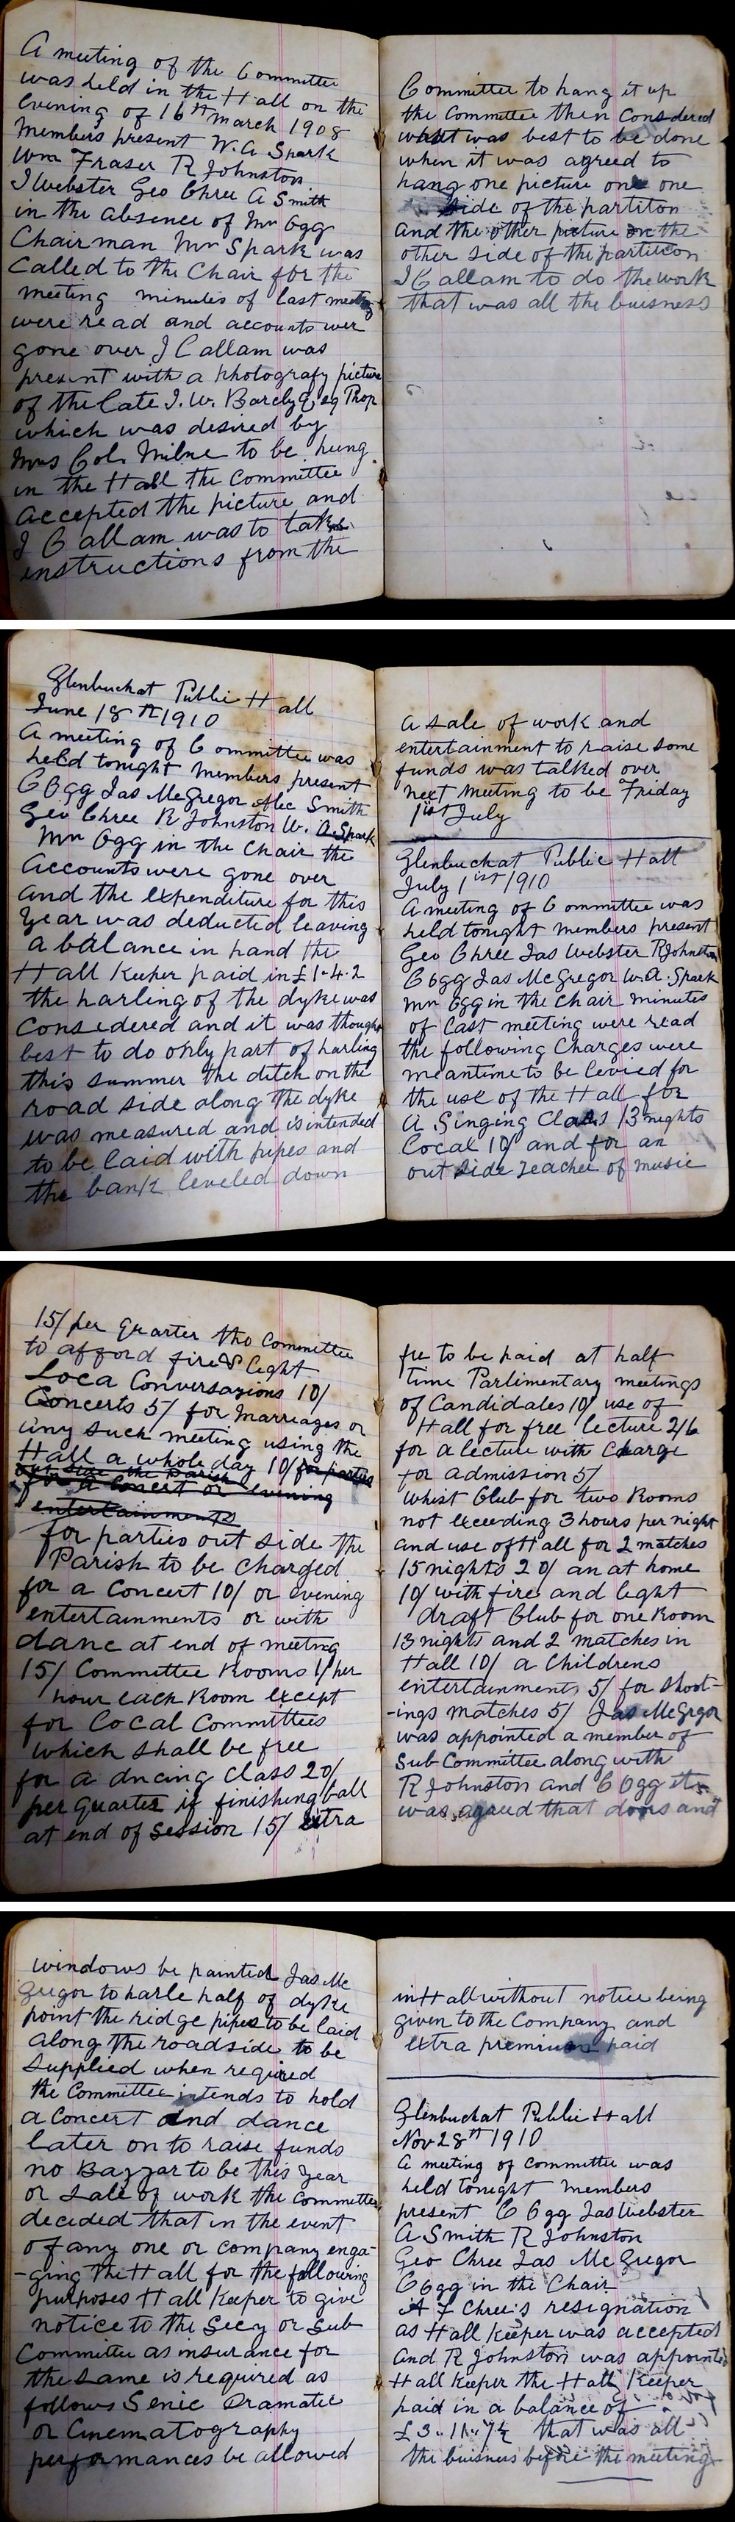 A meeting of the Committee
was held in the Hall on the
Evening of 16th March 1908
Members present W. A Spark
Wm Fraser R Johnston
J Webster Geo Chree A Smith
in the absence of Mr Ogg
Chairman Mr Spark was
Called to the Chair for the
meeting minutes of last meeting
were read and accounts wer
gone over J Callam was
present with a photografy picture
of the late J. W. Barcly
which was desired by
Mrs Col. Milne to be hung
in the Hall the Committee
accepted the picture and
J Callam was to take
instructions from the
Committee to hang it up
the Committee then Considered
what was best to be done
when it was agreed to
hang one picture one one
side of the partiton
and the other picture on the
other side of the partition
J Callam to do the work
that was all the buisness
Glenbuchat Public Hall
June 18th 1910
A meeting of Committee was
held tonight members present
C Ogg Jas McGregor Alec Smith
Geo Chree R Johnston W. A Spark
Mr Ogg in the Chair the
accounts were gone over
and the expenditure for this
Year was deducted leaving
a balance in hand the
Hall Keeper paid in £1-4-2
the harling of the dyke was
Considered and it was thought
best to do only part of harling
this summer the ditch on the
road side along the dyke
was measured and is intended
to be laid with pipes and
the bank leveled down
a sale of work and
entertainment to raise some
funds was talked over
next meeting to be Friday
1st July
Glenbuchat Public Hall
July 1ist 1910
A meeting of Committee was
held tonight members present
Geo Chree Jas Webster R Johnston
C Ogg Jas McGregor W. A. Spark
Mr Ogg in the Chair minutes
of Last meeting were read
the following Charges were
meantime to be levied for
the use of the Hall for
A Singing Class 13 nights
Local 10/ and for an
out side teacher of music
15/ per quarter the Committee
to afford fire & light
Loca Conversazions 10/
Concerts 5/ for Marriages or
any such meeting using the
Hall a whole day 10/ for parties
out side the Parish
for a Concert or evening
entertainments
for parties out side the
Parish to be Charged
for a Concert 10/ or evening
entertainments or with
danc at end of meeting
15/ Committee Rooms 1/ per
hour each Room except
for Local Committees
which shall be free
for a dncing Class 20/
per quarter if finishing ball
at end of session 15/ extra
fee to be paid at half
time Parlimentary meetings
of Candidates 10/ use of
Hall for free lecture 2/6
for a lecture with Charge
for admission 5/
Whist Club for two Rooms
not exceeding 3 hours per night
and use of Hall for 2 matches
15 nights 20/ an at home
10/ with fire and light
draft Club for one Room
13 nights and 2 matches in
Hall 10/ a Childrens
entertainments 5/ for shoot-
-ings matches 5/ Jas McGregor
was appointed a member of
Sub Committee along with
R Johnston and C Ogg it
was agreed that doors and
windows be painted Jas Mc
Gregor to harle half of dyke
point the ridge pipes to be laid
along the roadside to be
supplied when required
the Committee intends to hold
a Concert and dance
later on to raise funds
no Bazzar to be this Year
or Sale of work the Committee
decided that in the event
of any one or company enga-
-ging the Hall for the following
purposes Hall Keeper to give
notice to the Secy or Sub
Committee as insurance for
the same is required as
follows Senic Dramatic
or Cinematography
performances be allowed
in Hall without notice being
given to the Company and
extra premium paid
Glenbuchat Public Hall
Nov 28th 1910
A meeting of committee was
held tonight members
present C Ogg Jas Webster
A Smith R Johnston
Geo Chree Jas McGregor
C Ogg in the Chair
A F Chree's resignation
as Hall Keeper was accepted
and R Johnston was appointed
Hall Keeper the Hall Keeper
paid in a balance of
£3..11..7½ that was all
the buisness before the meeting